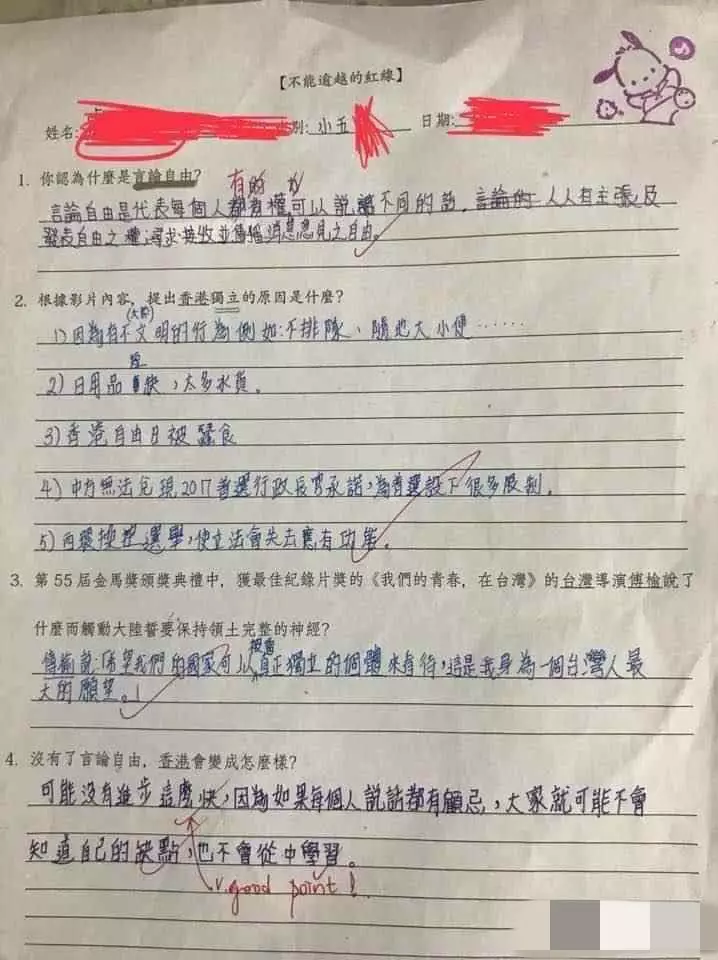 【不能逾越的紅線】
姓名: 別: 小五 日期:
1. 你認為什麼是言論自由?
有的 力
言論自由是代表每個人都有權可以說不同的話。言論的 人人有主張及
發表自由之權;尋求、接收並傳播消息意見之自由。
2. 根據影片內容,提出香港獨立的原因是什麼?
(大陸)
1)因為有不文明的行為例如:不排隊、隨地大小便……
2)日用品短缺,太多水貨。
3)香港自由日被蠶食
4)中方無法兌現2017普選行政長官承諾,為普選設下很多限制。
5)西環操控選舉,使立法會失去應有功能。
3. 第55屆金馬獎頒獎典禮中,獲最佳紀錄片獎的《我們的青春,在台灣》的台灣導演傅榆說了
什麼而觸動大陸誓要保持領土完整的神經?
被當
傅榆說:希望我們的國家可以真正獨立的個體來看待,這是我身為一個台灣人最
大的願望。!
4. 沒有了言論自由,香港會變成怎麼樣?
可能沒有進步這麼快,因為如果每個人說話都有顧忌,大家就可能不會
知道自己的缺點,也不會從中學習。
v.good point!